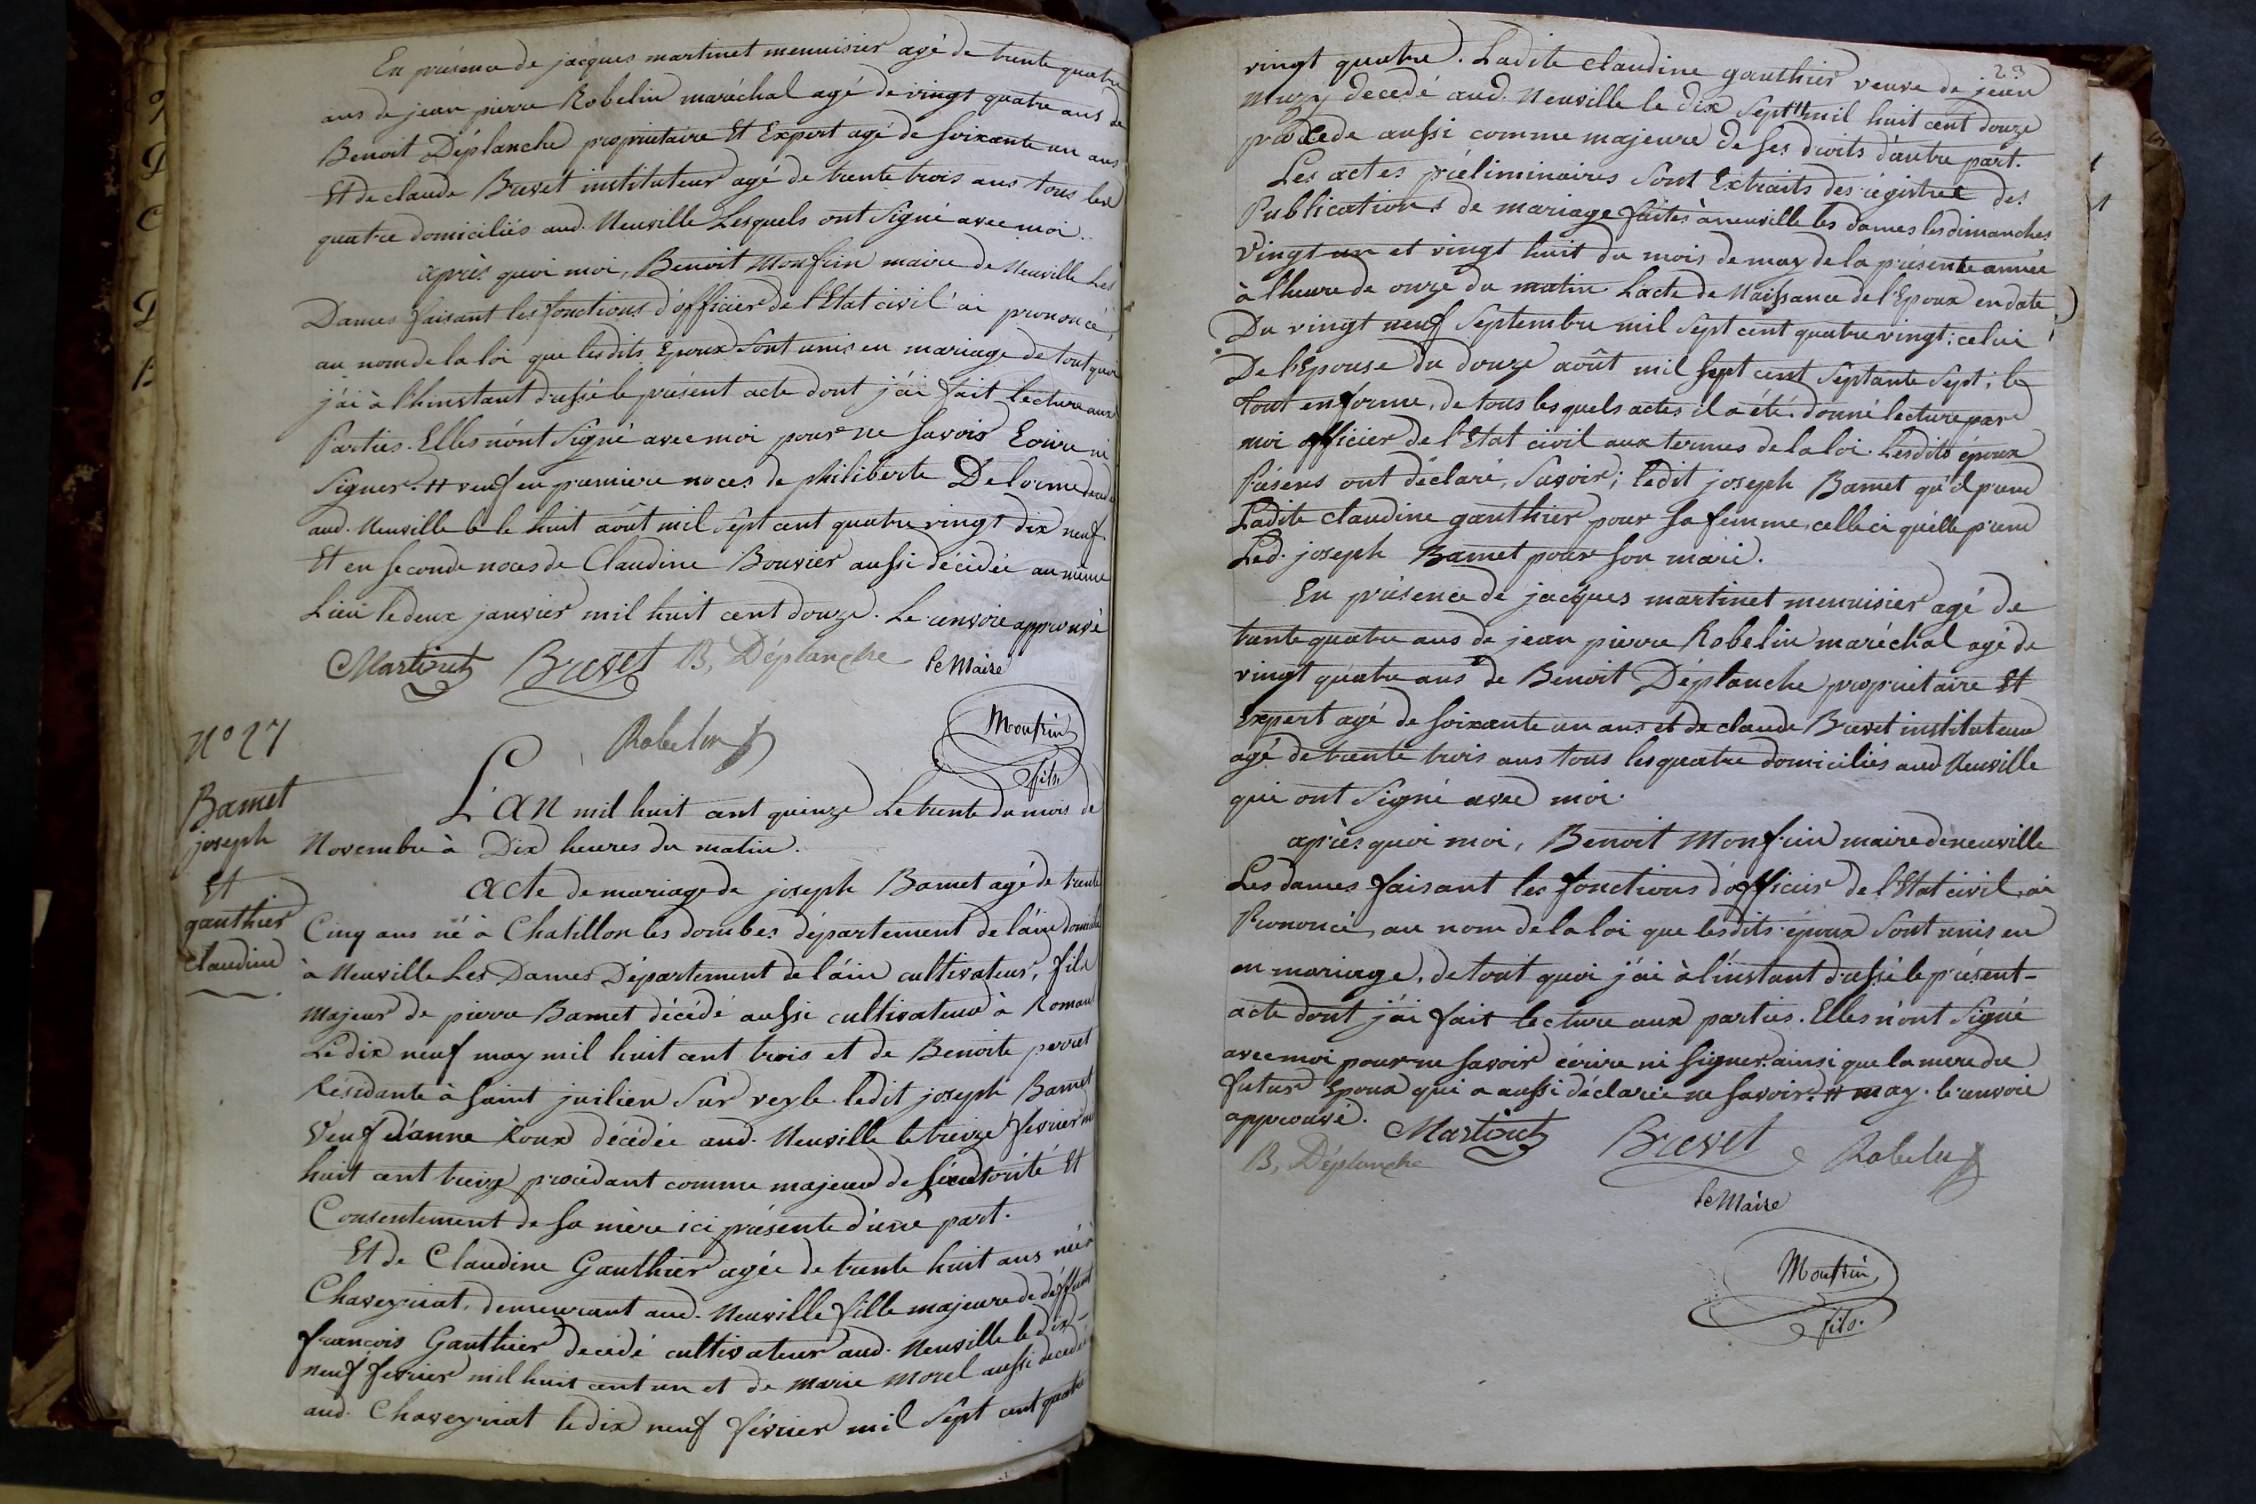 En présence de jacques martinet menuisier agé de trente quatre
ans de jean pierre Robelin maréchal agé de vingt quatre ans de
Benoit Déplanche propriétaire Et Expert agé de soixante un ans
Et de claude Brevet instituteur agé de trente trois ans tous les
quatre domiciliés aud. Neuville Lesquels ont signé avec moi.
après quoi moi, Benoit Monfrin maire de Neuville Les
Dames faisant les fonctions d'officier de l'Etat civil ai prononcé
au nom de la loi que lesdits Epoux sont unis en mariage de tout quoi
j'ai à l'hinstant dressé le présent acte dont j'ai fait lecture aux
Parties. Elles n'ont signé avec moi pour ne savoir Ecrire ni
signer. # veuf en premiere noces de philiberte Delorme
aud. Neuville le huit août mil sept cent quatre vingt dix neuf
Et en seconde noces de Claudine Bouvier aussi décédée au même
Lieu le deux janvier mil huit cent douze. Le renvoie approuvé
Martinet Brevet B, Déplanche le Maire
Robelin
Monfrin
fils
N° 27
Bamet
joseph
Et
gauthier
claudine
L'an mil huit cent quinze Le trente du mois de
Novembre à Dix heures du matin.
acte de mariage de joseph Bamet agé de trente
Cinq ans né à Chatillon les dombes département de l'ain domicilié
à Neuville Les Dames Département de l'ain cultivateur, fils
majeur de pierre Bamet décédé aussi cultivateur à Romans
Le dix neuf may mil huit cent trois et de Benoite perret
Résidante à saint juilien sur veyle. ledit joseph Bamet
Veuf d'anne Roux décédée aud. Neuville le treize fevrier mil
huit cent treize procédant comme majeur de l'autorité Et
Consentement de sa mère ici présente d'une part.
Et de Claudine Gauthier agée de trente huit ans née à
Chaveyriat, demeurant aud. Neuville fille majeure de deffunt
françois Gauthier decédé cultivateur aud. Neuville le dix-
neuf fevrier mil huit cent un et de marie morel aussi decedée
aud. Chaveyriat le dix neuf février mil sept cent quatre
29
vingt quatre. Ladite claudine gauthier veuve de jean
muzy decedé aud. Neuville le dix sept # mil huit cent douze
procede aussi comme majeure de ses droits d'autre part.
Les actes préliminaires sont Extraits des régistres des
Publications de mariage faites à neuville les dames les dimanches
vingt un et vingt huit du mois de may de la présente année
à l'heure de onze du matin. L'acte de Naissance de l'Epoux en date
Du vingt neuf septembre mil sept cent quatre vingt; celui
De l'Epouse du douze août mil sept cent septante sept; le
tout en forme, de tous lesquels actes il a été donné lecture par
moi officier de l'Etat civil aux termes de la loi. Lesdits époux
Présens ont déclaré, savoir; ledit joseph Bamet qu'il prend
Ladite claudine gauthier pour sa femme, celle ci qu'elle prend
Led. joseph Bamet pour son mari.
En présence de jacques martinet menuisier agé de
trente quatre ans de jean pierre Robelin maréchal agé de
vingt quatre ans de Benoit Déplanche propriétaire Et
Expert agé de soixante un ans et de claude Brevet instituteur
agé de trente trois ans tous les quatre domiciliés aud Neuville
qui ont signé avec moi.
après quoi moi, Benoit Monfrin maire de neuville
Les dames faisant les fonctions d'officier de l'Etat civil, ai
Prononcé, au nom de la loi que lesdits époux sont unis en
en mariage, de tout quoi j'ai à l'instant dressé le présent-
acte dont j'ai fait lecture aux parties. Elles n'ont signé
avec moi pour ne savoir écrire ni signer. ainsi que la mere du
futur Epoux qui a aussi déclarée ne savoir. # may. le renvoie
approuvé.
Martinet Brevet Robelin
B, Déplanche
le Maire
Monfrin
fils.